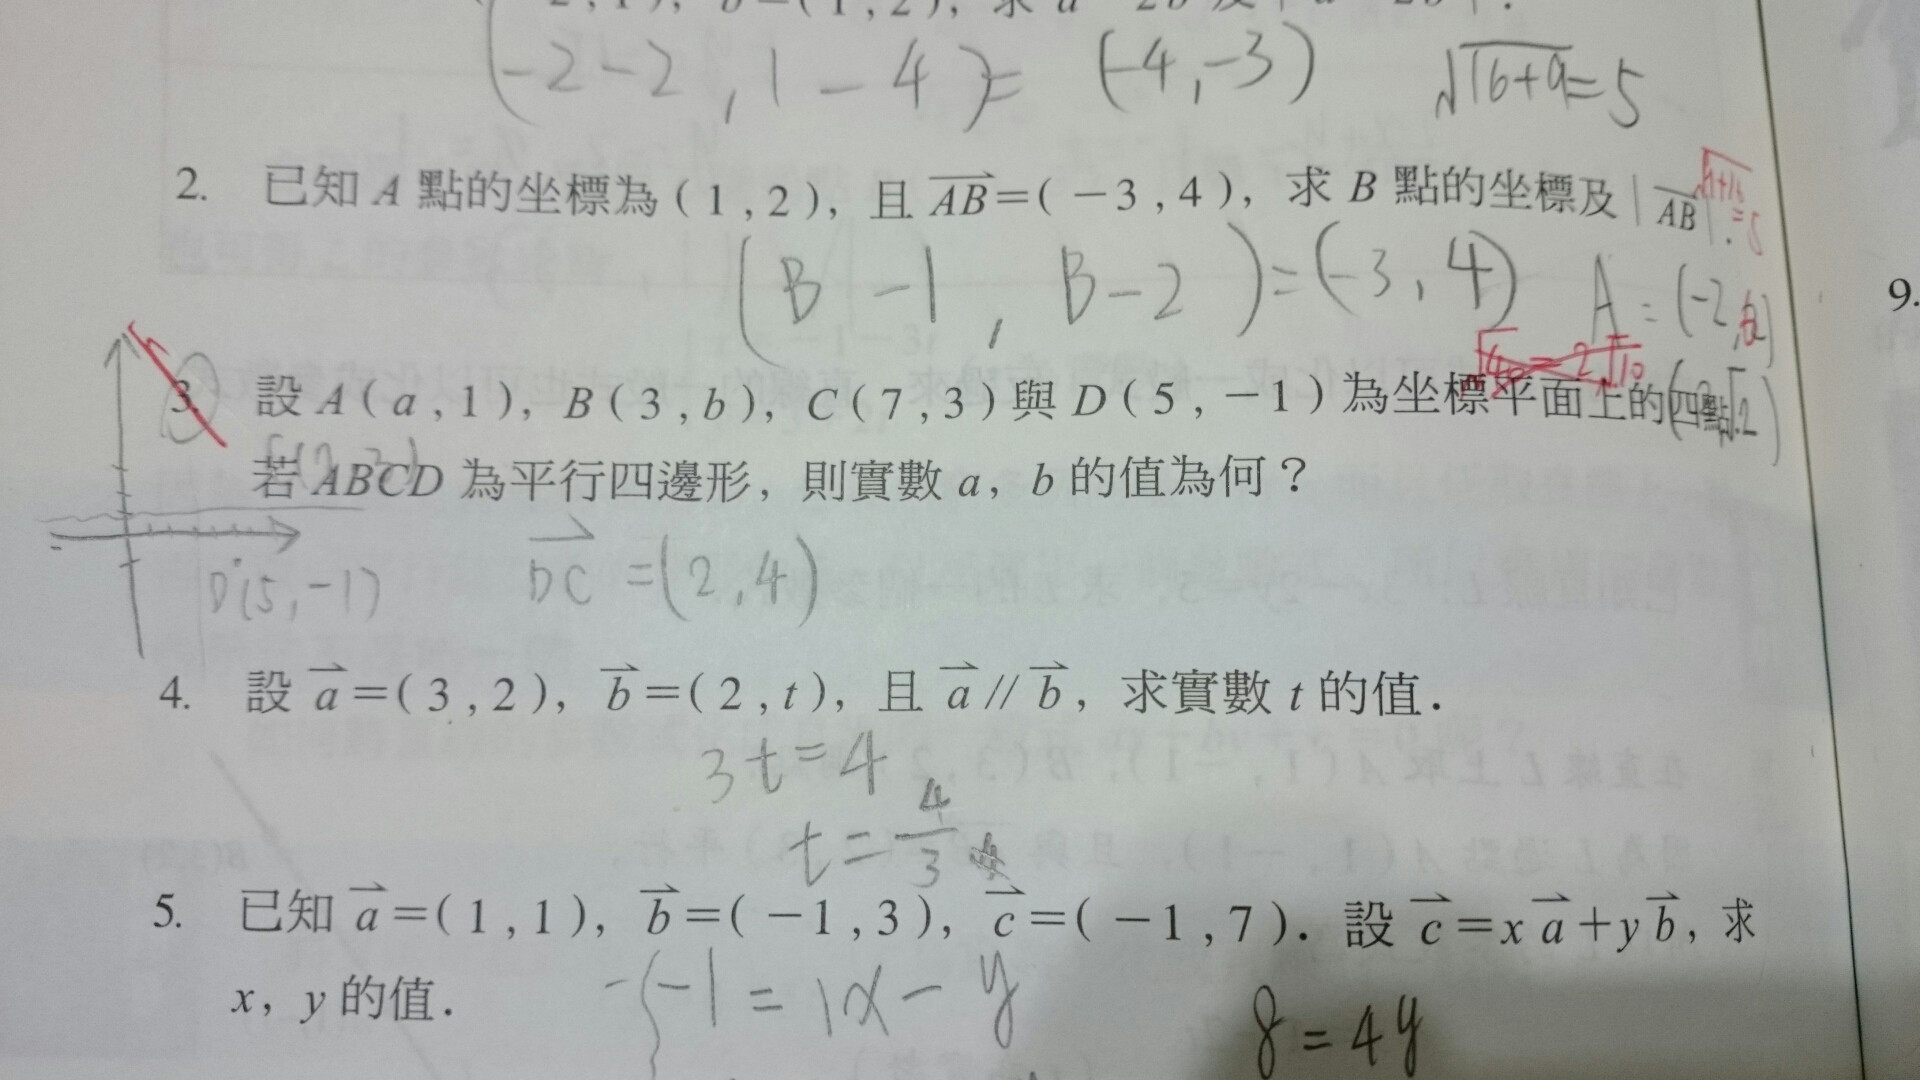 (-2-2, 1-4) = (-4, -3) √16+9=5
2. 已知 A 點的坐標為 ( 1 , 2 ), 且 AB=( -3 , 4 ), 求 B 點的坐標及 | AB |.
=5
(B-1, B-2)=(-3, 4) A=(-2,
√40=2√10
3. 設 A ( a , 1 ), B ( 3 , b ), C ( 7 , 3 ) 與 D ( 5 , -1 ) 為坐標平面上的四點,
若 ABCD 為平行四邊形, 則實數 a, b 的值為何?
D(5,-1) DC=(2,4)
4. 設 a=( 3 , 2 ), b=( 2 , t ), 且 a // b, 求實數 t 的值.
3t=4
t=4/3
5. 已知 a=( 1 , 1 ), b=( -1 , 3 ), c=( -1 , 7 ). 設 c=xa+yb, 求
x, y 的值.
-1=1x-y
8=4y
9.